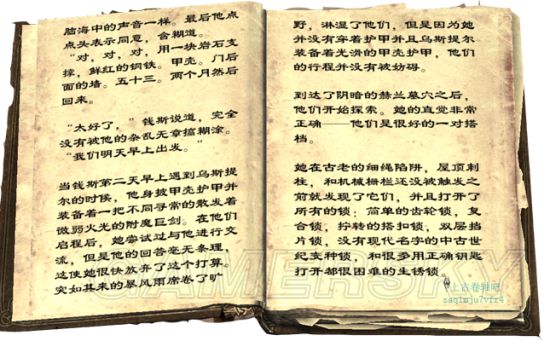 脑海中的声音一样。最后他点
点头表示同意，含糊道。
“对，对，用一块岩石支
撑，鲜红的钢铁。甲壳。门后
面的墙。五十三。两个月然后
回来。
“太好了，”钱斯说道，完全
没有被他的杂乱无章搞糊涂。
“我们明天早上出发。”
当钱斯第二天早上遇到乌斯提
尔的时候，他身披甲壳护甲并
装备着一把不同寻常的散发着
微弱火光的附魔巨剑。在他们
启程后，她尝试过与他进行交
流，但是他的回答毫无条理，
这使她很快放弃了这个打算。
突如其来的暴风雨席卷了旷
野，淋湿了他们，但是因为她
并没有穿着护甲并且乌斯提尔
装备着光滑的甲壳护甲，他们
的行程并没有被妨碍。
到达了阴暗的赫兰墓穴之后，
他们开始探索。她的直觉非常
正确——他们是很好的一对搭
档。
她在古老的细绳陷阱，屋顶刺
柱，和机械栅栏还没被触发之
前就发现了它们，并且打开了
所有的锁：简单的齿轮锁，复
合锁，拧转的搭扣锁，双层挡
片锁，没有现代名字的中古世
纪变种锁，和很多用正确钥匙
打开都很困难的生锈锁。
GAMERSKY
上古卷轴吧
zaqimju7vfr4